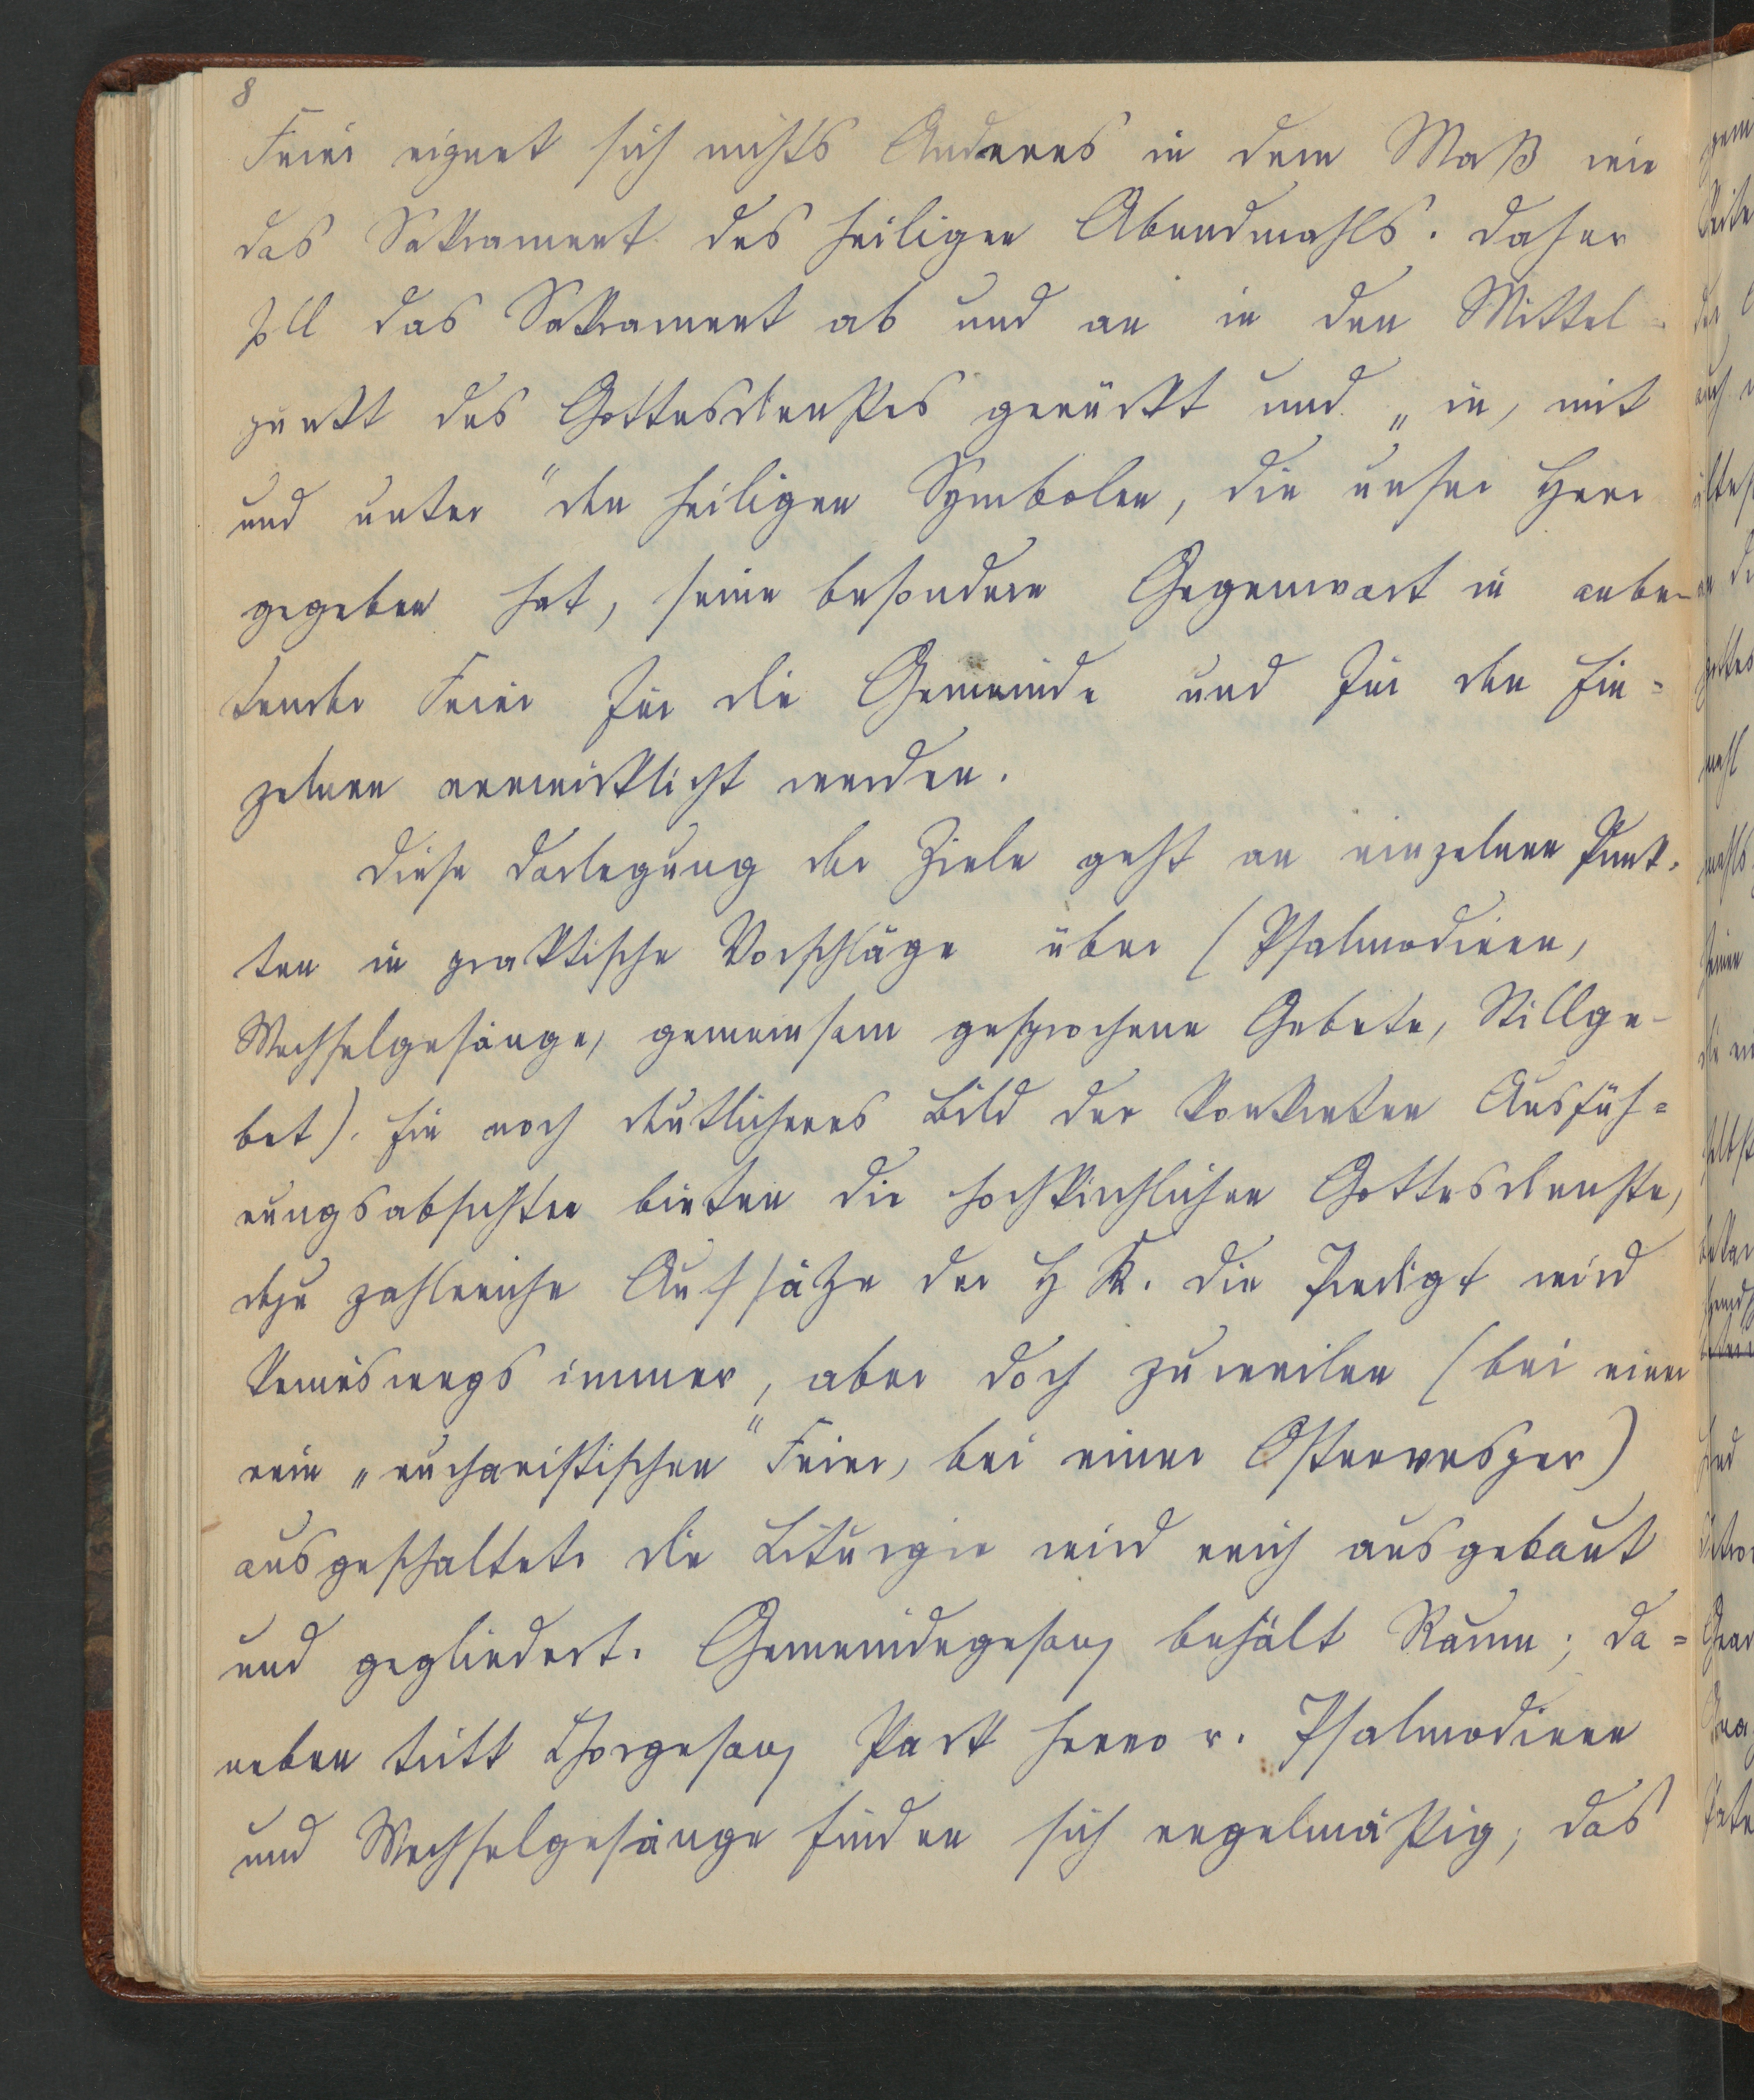 8
Feier eignet sich nichts Anderes in dem Maß wie
das Sakrament des heiligen Abendmahls. Daher
soll das Sakrament ab und an in den Mittel-
punkt des Gottesdienstes gerückt und „in, mit
und unter" den heiligen Symbolen, die unser Herr
gegeben hat, seine besondere Gegenwart in anbe-
tender Feier für die Gemeinde und für den Ein=
zelnen verwirklicht werden.
Diese Darlegung der Ziele geht an einzelnen Punk-
ten in praktische Vorschläge über (Psalmodieren,
Wechselgesänge, gemeinsam gesprochene Gebete, Stillge-
bet). Ein noch deutlicheres Bild der konkreten Ausfüh=
rungsabsichten bieten die hochkirchlichen Gottesdienste,
dazu zahlreiche Aufsätze der H K. Die Predigt wird
keineswegs immer, aber doch zuweilen (bei einer
rein „eucharistischen" Feier, bei einer Ostervesper)
ausgeschaltet. Die Liturgie wird reich ausgebaut
und gegliedert. Gemeindegesang behält Raum; da=
neben tritt Chorgesang stark hervor. Psalmodieren
und Wechselgesänge finden sich regelmäßig; das